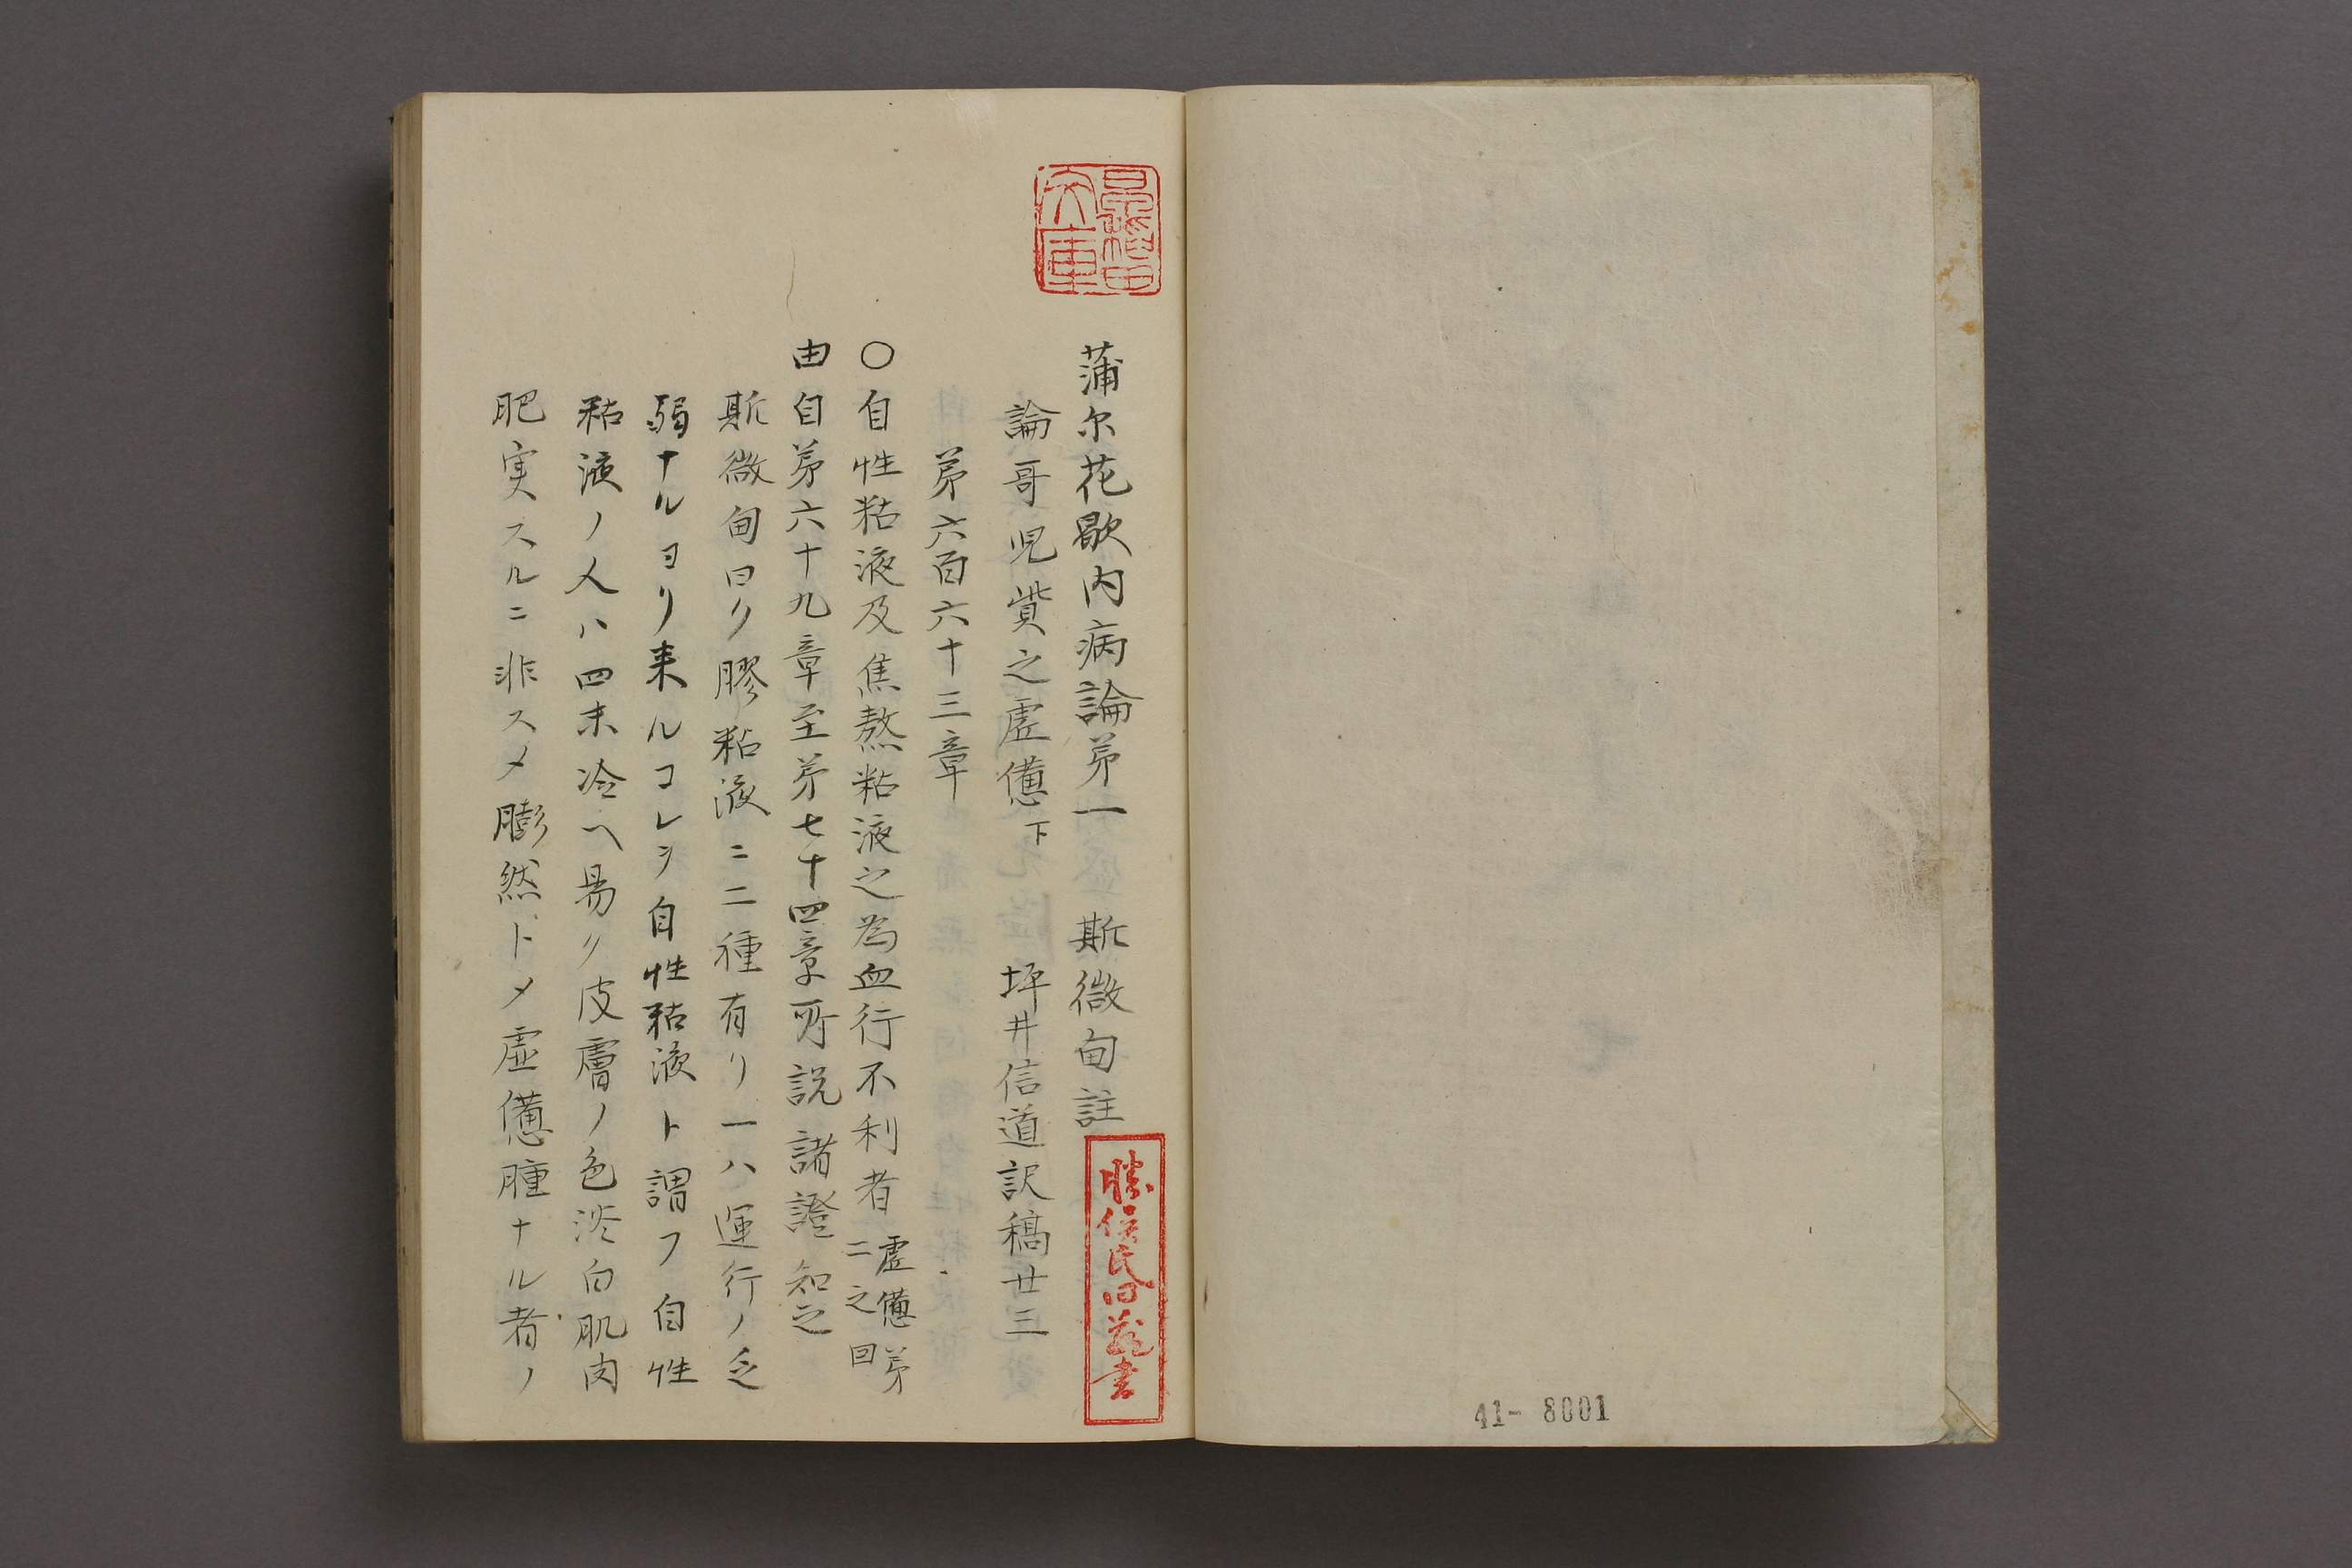 蒲尔花歇内病論苐一　斯微甸註
論哥児貲之虚憊下　坪井信道訳稿廿三
苐六百六十三章
〇自性粘液及焦熬粘液之為血行不利者虚憊苐二之回
由自苐六十九章至苐七十四章所説諸證知之
斯微甸曰ク膠粘液ニ二種有リ一ハ運行ノ乏
弱ナルヨリ来ルコレヲ自性粘液ト謂フ自性
粘液ノ人ハ四末冷ヘ易ク皮膚ノ色淡白肌肉
肥実スルニ非スメ膨然トメ虚憊腫ナル者ノ
41- 8001